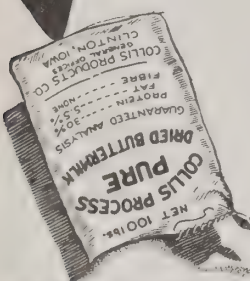 NET 100 lbs.
COLLIS PROCESS
PURE
DRIED BUTTERMILK
GUARANTEED ANALYSIS
PROTEIN ------ 30%
FAT ------ 5.5%
FIBRE ------ NONE
COLLIS PRODUCTS CO.
GENERAL OFFICES
CLINTON, IOWA